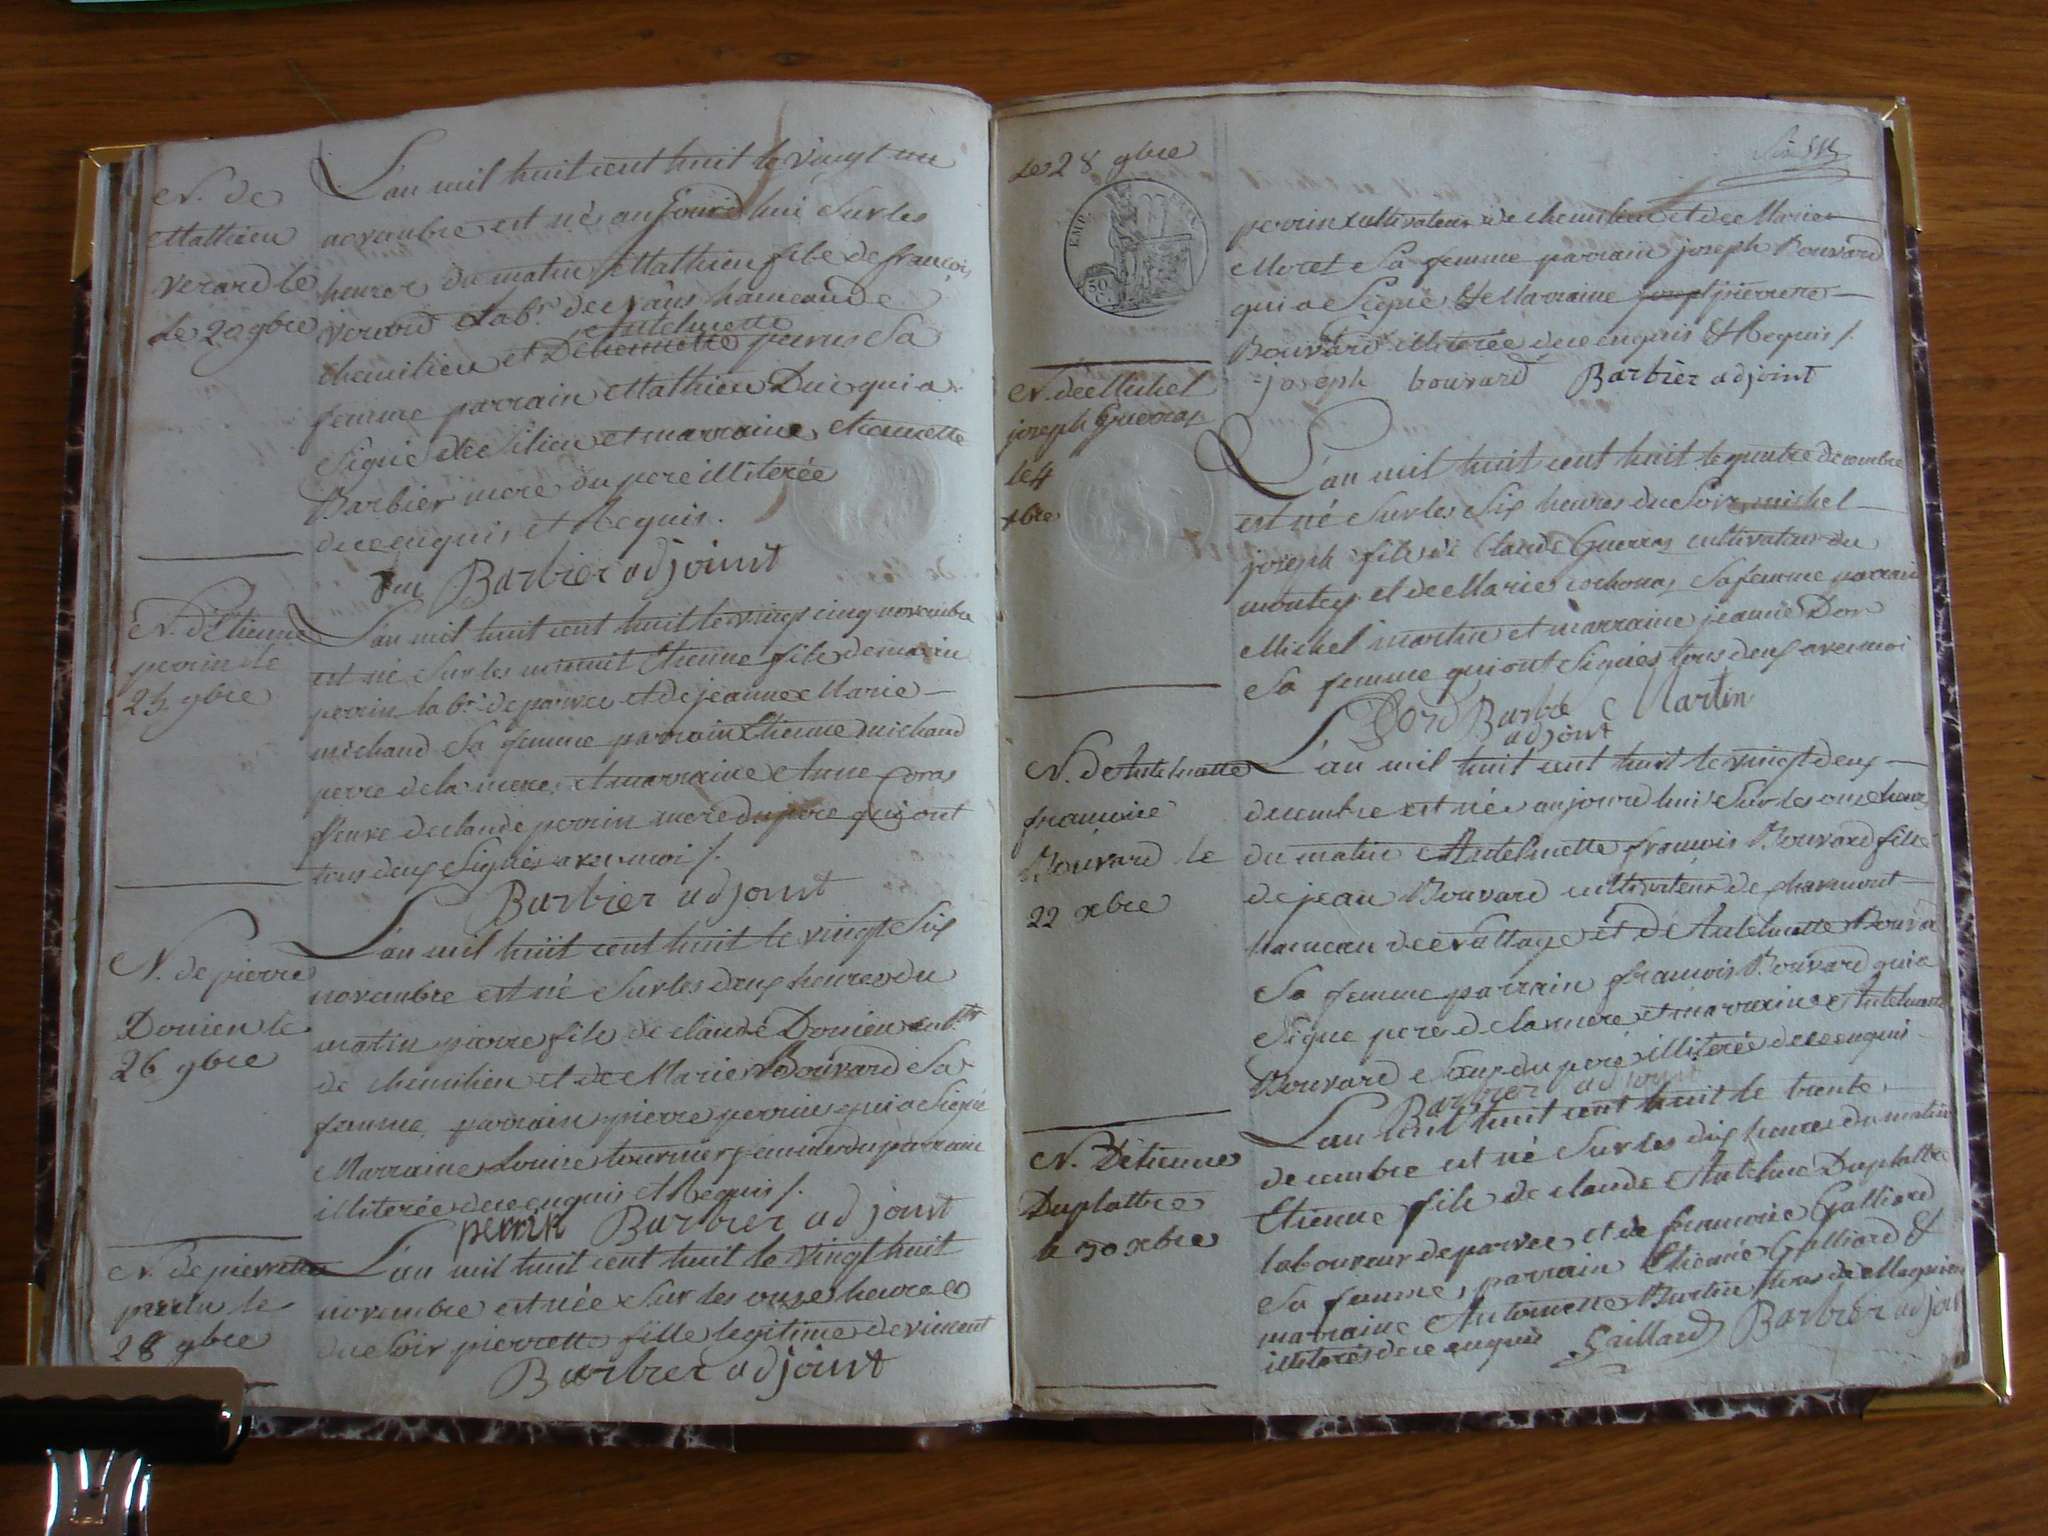 N. de
Mathieu
verard le
Le 20 9bre
L'an mil huit cent huit le vingt un
novembre est né aujourd'hui sur les
heures du matin Mathieu fils de françois
verard Lab.r de hameau de
chemilieu et Antelmette sa
femme parrain Mathieu Duc qui a
signé et marraine etiennette
Barbier mere du pere illiterée
de ce enquis et Requis.
Duc Barbier adjoint
N. d'Etienne
perrin le
25 9bre
L'an mil huit cent huit le vingt cinq novembre
est né sur les minuit Etienne fils de
perrin lab.r de parvee et de jeanne Marie
michaud sa femme parrain Etienne michaud
pere de la mere, et marraine Anne
veuve de claude perrin mere du pere qui ont
tous deux signés avec moi /.
Barbier adjoint
N. de pierre
Dounien le
26 9bre
L'an mil huit cent huit le vingt six
novembre est né sur les deux heures du
matin pierre fils de claude Dounien
de chemilieu et de Marie Bouvard sa
femme parrain pierre perrin qui a signé
Marraine Louise tournier femme du parrain
illiterée de ce enquis et Requis /.
perrin Barbier adjoint
N. de pierrette
perrin le
28 9bre
L'an mil huit cent huit le vingt huit
novembre est née sur les onze heures
du soir pierrette fille legitime de vincent
Barbier adjoint
Le 28 9bre
EMP.
50
C.
perrin cultivateur de chemilieu et de Marie
Moret sa femme parrain joseph Bouvard
qui a signé et Marraine pierrette
Bouvard illiterée de ce enquis et Requis /.
joseph bouvard Barbier adjoint
N. de Michel
joseph Guerraz
le 4
xbre
L'an mil huit cent huit le quatre decembre
est né sur les six heures du soir michel
joseph fils de Claude Guerraz cultivateur du
montey et de Marie cochonaz sa femme parrain
Michel martin et marraine jeanne Dor
sa femme qui ont signés tous deux avec moi
Dord Barbie Martin
adjoint
N. de Antelmette
francoise
Bouvard le
22 xbre
L'an mil huit cent huit le vingt deux
decembre est née aujourd'hui sur les onze heures
du matin Antelmette francois Bouvard fille
de jean Bouvard cultivateur de charmont
hameau de et de Antelmette Bouvard
sa femme parrain francois Bouvard qui a
signé pere de la mere et marraine Antelmette
Bouvard sœur du pere illiterée de ce enquis
Barbier adjoint
N. D'étienne
Duplattre
le 30 xbre
L'an mil huit cent huit le trente
decembre est né sur les dix heures du matin
Etienne fils de claude Antelme Duplattre
laboureur de parvee et de francoise Galliard
sa femme, parrain Etienne Galliard et
marraine Antoinette Burtin tous
illiterés de ce enquis Gaillard Barbier adjoint